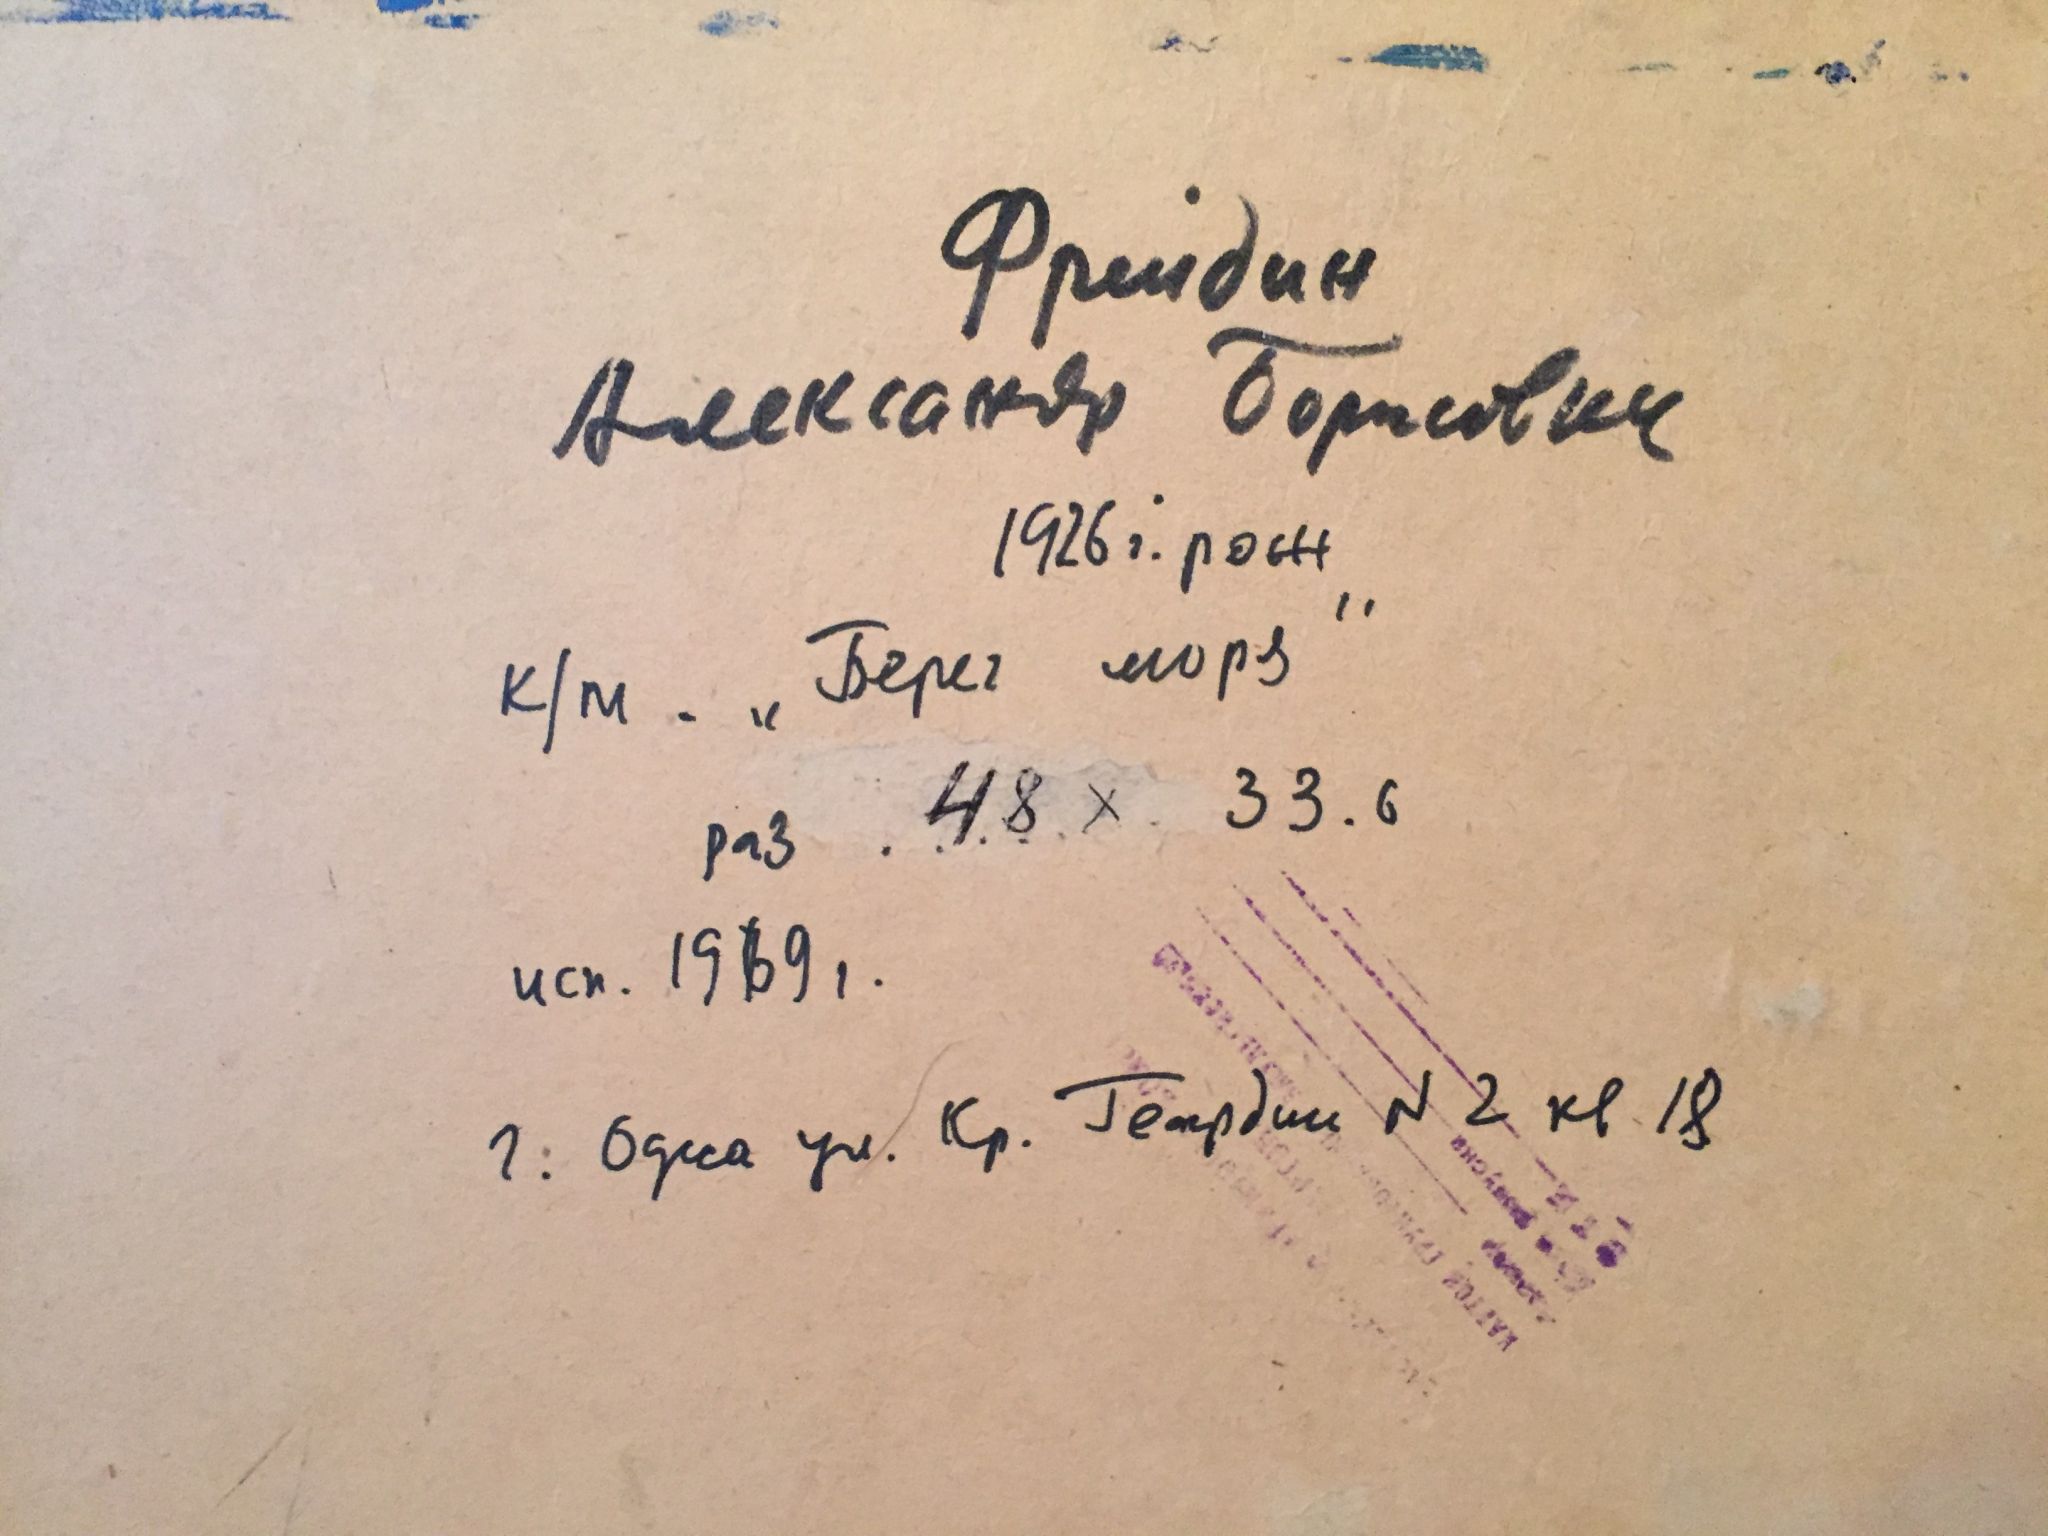 Фрейдин
Александр Борисович
1926 г. рож
к/м. „Берег моря"
раз. 48 х 33.6
исп. 1969 г.
г: Одесса ул. Кр. Гвардии N 2 кв 18